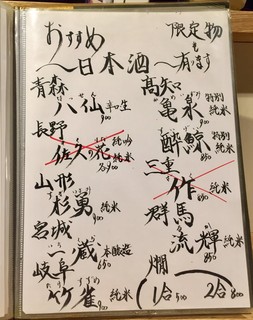 おすすめ
〜日本酒〜
限定物
も
有ります
青森
八仙
900
長野
佐久の花 純吟
山形
杉勇 純米
900
宮城
一ノ蔵 本醸造
650
岐阜
竹雀 純米
900
高知
亀泉 特別
純米
酔鯨 特別
純米
850
三重
作 純米
850
群馬
流輝 純米
850
燗
1合 500
2合 800